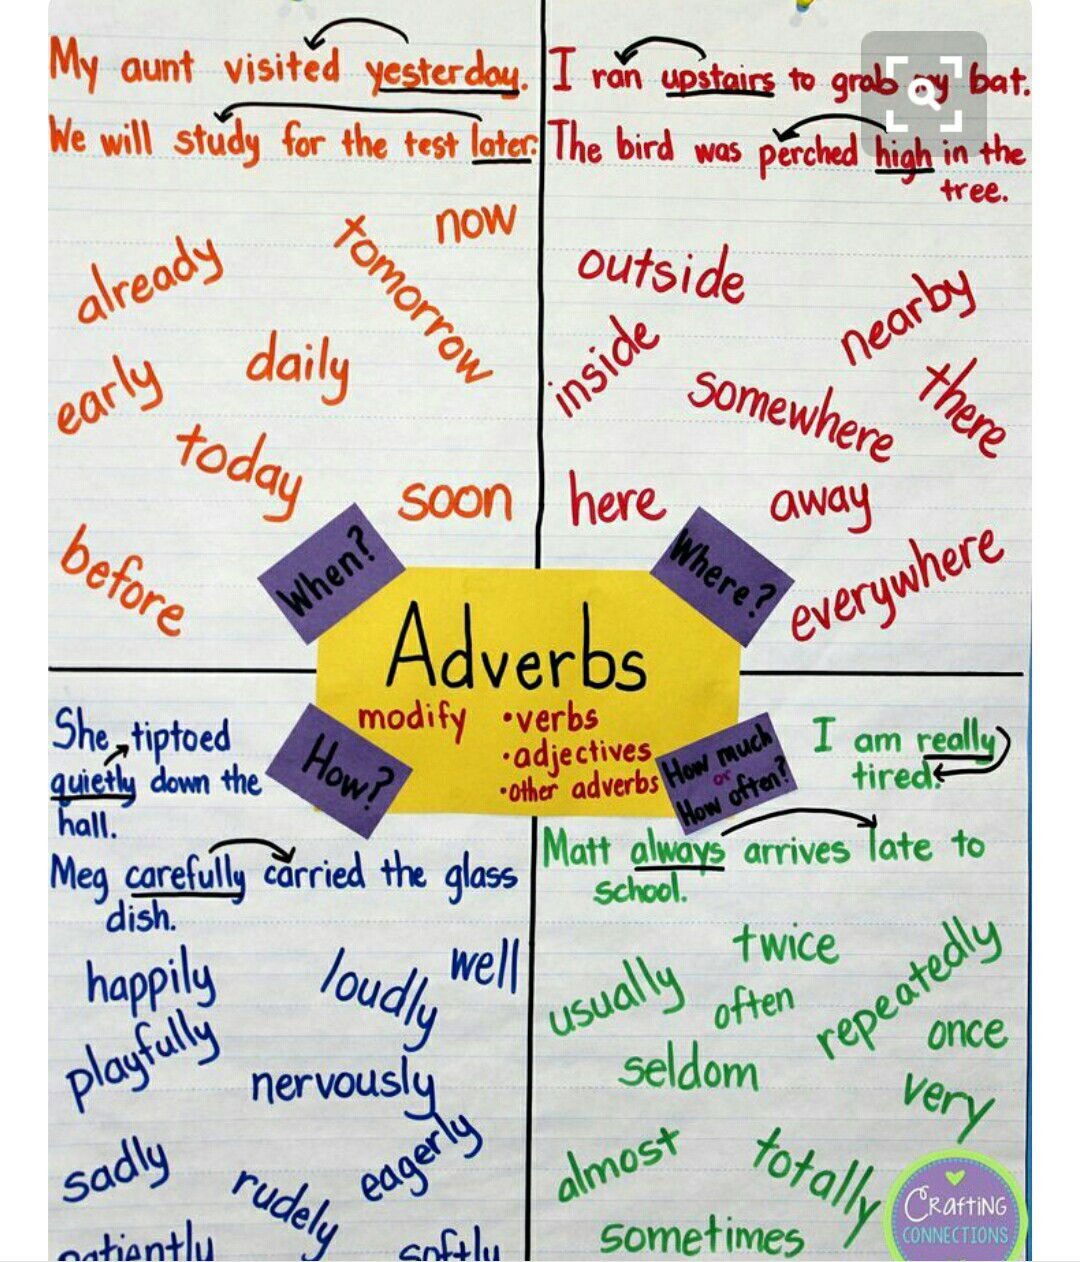 My aunt visited yesterday.
We will study for the test later.
now
tomorrow
already
daily
early
today
soon
before
When?
I ran upstairs to grab my bat.
The bird was perched high in the
tree.
outside
nearby
inside
there
somewhere
here
away
everywhere
Where?
Adverbs
modify
•verbs
•adjectives
•other adverbs
How?
She tiptoed
quietly down the
hall.
Meg carefully carried the glass
dish.
well
happily
loudly
playfully
nervously
eagerly
sadly
rudely
patiently
softly
How much
or
How often?
I am really
tired.
Matt always arrives late to
school.
twice
repeatedly
usually
often
once
seldom
very
almost
totally
sometimes
CRAFTING
CONNECTIONS